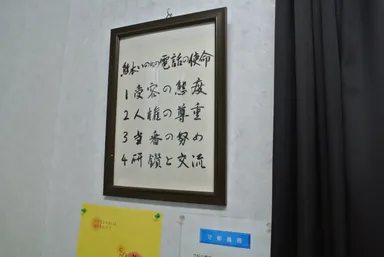 熊本いのちの電話の使命
1 受容の態度
2 人権の尊重
3 当番の努め
4 研鑽と交流